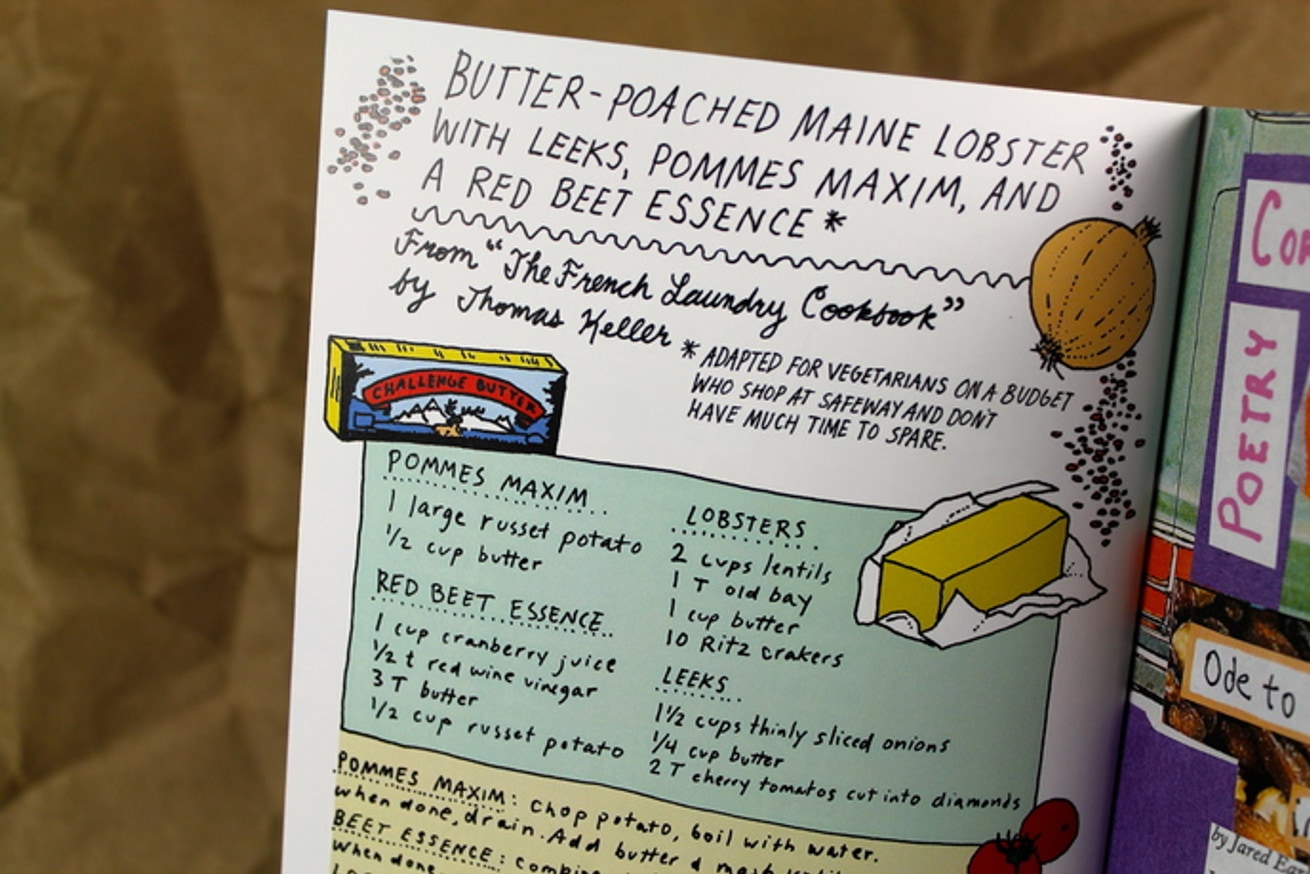 BUTTER-POACHED MAINE LOBSTER
WITH LEEKS, POMMES MAXIM, AND
A RED BEET ESSENCE*
From "The French Laundry Cookbook"
by Thomas Keller
* ADAPTED FOR VEGETARIANS ON A BUDGET
WHO SHOP AT SAFEWAY AND DON'T
HAVE MUCH TIME TO SPARE.
CHALLENGE BUTTER
POMMES MAXIM
1 large russet potato
1/2 cup butter
RED BEET ESSENCE
1 cup cranberry juice
1/2 t red wine vinegar
3 T butter
1/2 cup russet potato
LOBSTERS
2 cups lentils
1 T old bay
1 cup butter
10 Ritz crakers
LEEKS
1 1/2 cups thinly sliced onions
1/4 cup butter
2 T cherry tomatos cut into diamonds
POMMES MAXIM: Chop potato, boil with water.
when done, drain. Add butter & mash
BEET ESSENCE:
when done
POETRY
Ode to
by Jared